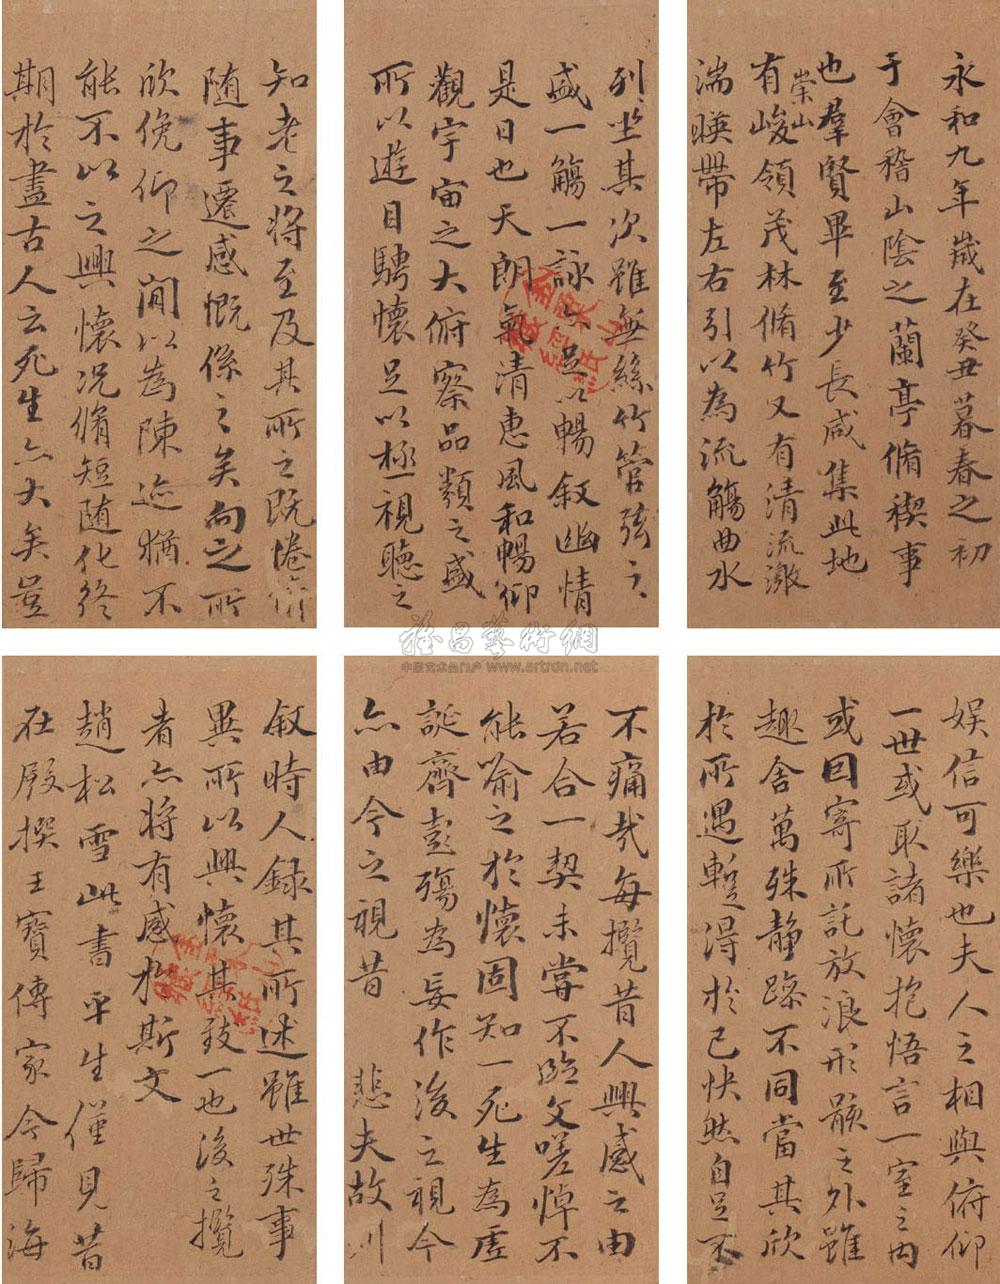 永和九年歲在癸丑暮春之初
于會稽山陰之蘭亭脩禊事
也羣賢畢至少長咸集此地
有崇山峻領茂林脩竹又有清流激
湍暎帶左右引以為流觴曲水
列坐其次雖無絲竹管弦之
盛一觴一詠亦足以暢敘幽情
是日也天朗氣清惠風和暢仰
觀宇宙之大俯察品類之盛
所以遊目騁懷足以極視聽之
娛信可樂也夫人之相與俯仰
一世或取諸懷抱悟言一室之內
或因寄所託放浪形骸之外雖
趣舍萬殊靜躁不同當其欣
於所遇蹔得於己快然自足不
知老之將至及其所之既惓情
隨事遷感慨係之矣向之所
欣俛仰之間以為陳迹猶不
能不以之興懷況脩短隨化終
期於盡古人云死生亦大矣豈
不痛哉每攬昔人興感之由
若合一契未嘗不臨文嗟悼不
能喻之於懷固知一死生為虛
誕齊彭殤為妄作後之視今
亦由今之視昔 悲夫故列
敘時人錄其所述雖世殊事
異所以興懷其致一也後之攬
者亦將有感於斯文
趙松雪此書平生僅見昔
在殿撰王寶傳家今歸海
雅昌藝術網
中国艺术品门户 www.artron.net